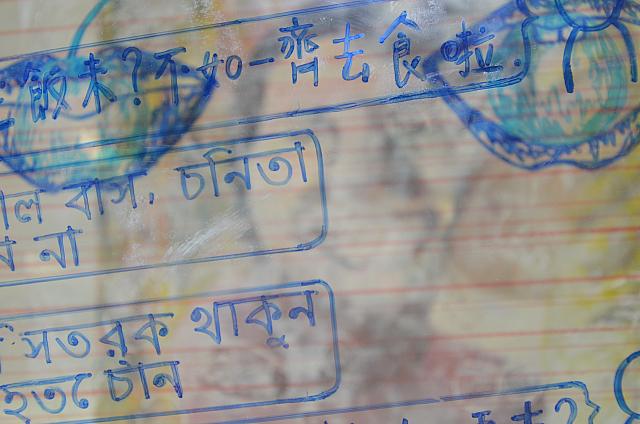 飯未?不如一齊去食啦.
বাস, চনিতা
না
সতরক থাকুন
হতে চান